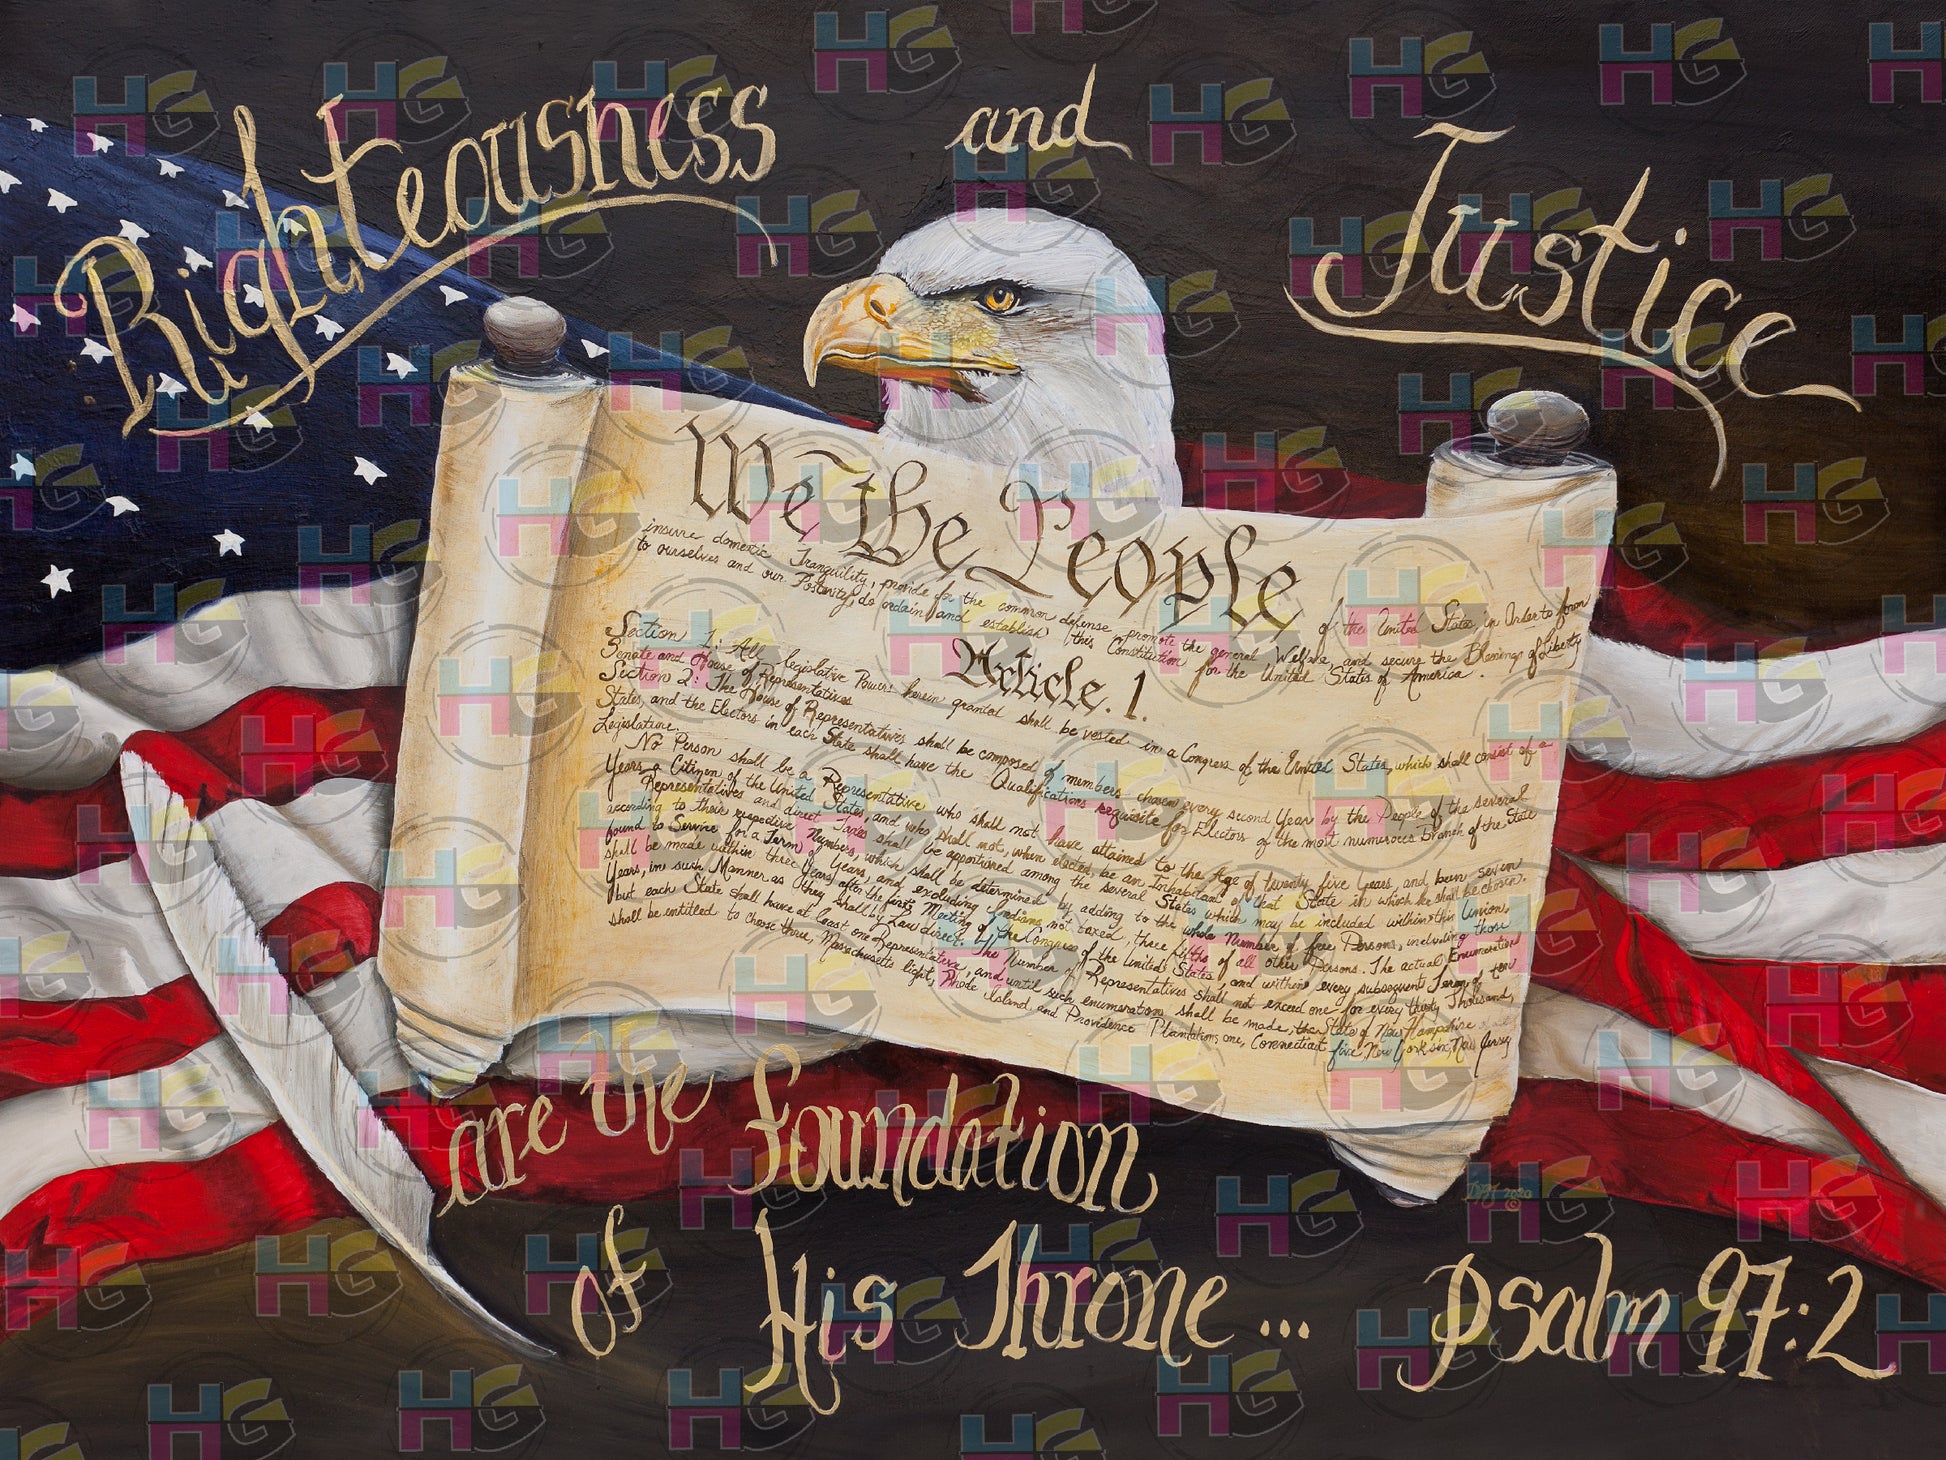 Righteousness and Justice
We the People
of the United States, in Order to form
insure domestic Tranquility, provide for the common defense, promote the general Welfare, and secure the Blessings of Liberty
to ourselves and our Posterity, do ordain and establish this Constitution for the United States of America.
Article. 1.
Section 1: All legislative Powers herein granted shall be vested in a Congress of the United States, which shall consist of a
Senate and House of Representatives
Section 2: The House of Representatives shall be composed of members chosen every second Year by the People of the several
States, and the Electors in each State shall have the Qualifications requisite for Electors of the most numerous Branch of the State
Legislature.
No Person shall be a Representative who shall not have attained to the Age of twenty five Years, and been seven
Years a Citizen of the United States, and who shall not, when elected, be an Inhabitant of that State in which he shall be chosen.
Representatives and direct Taxes shall be apportioned among the several States which may be included within this Union,
according to their respective Numbers, which shall be determined by adding to the whole Number of free Persons, including those
bound to Service for a Term of Years, and excluding Indians not taxed, three fifths of all other Persons. The actual Enumeration
shall be made within three Years after the first Meeting of the Congress of the United States, and within every subsequent Term of ten
Years, in such Manner as they shall by Law direct. The Number of Representatives shall not exceed one for every thirty Thousand,
but each State shall have at least one Representative, and until such enumeration shall be made, the State of New Hampshire
shall be entitled to choose three, Massachusetts eight, Rhode Island and Providence Plantations one, Connecticut five New York six, New Jersey
are the Foundation
of His Throne... Psalm 97:2
2020
©
HG